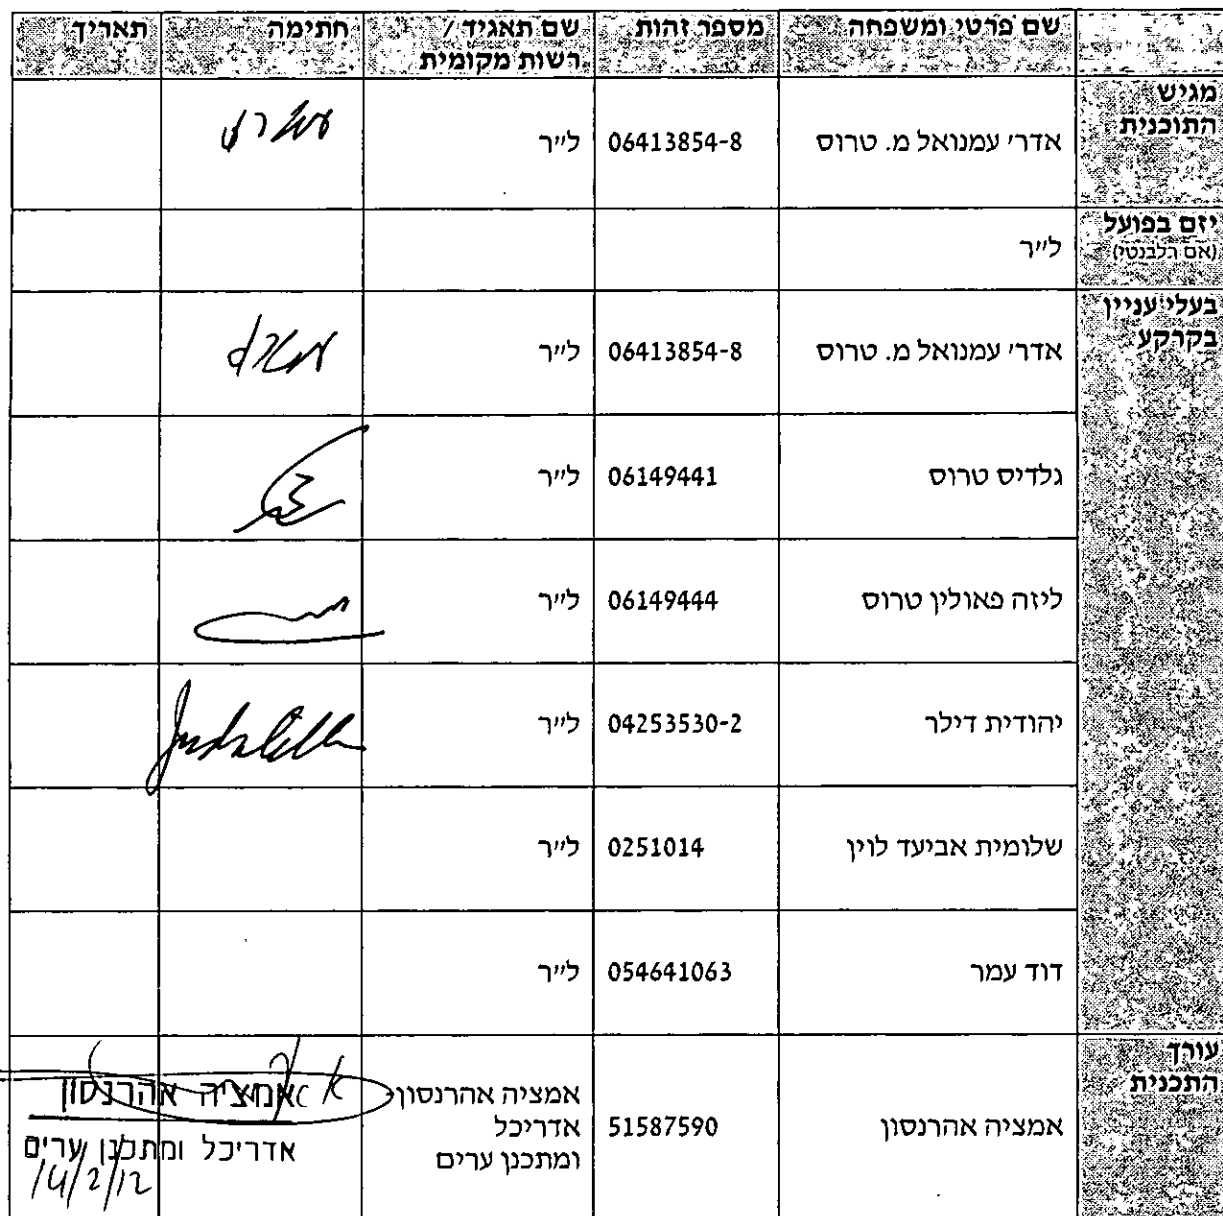 שם פרטי ומשפחה מספר זהות שם תאגיד / רשות מקומית חתימה תאריך
מגיש התוכנית אדר׳ עמנואל מ. טרוס 06413854-8 ל״ר
יזם בפועל (אם רלבנטי) ל״ר
בעלי עניין בקרקע אדר׳ עמנואל מ. טרוס 06413854-8 ל״ר
גלדיס טרוס 06149441 ל״ר
ליזה פאולין טרוס 06149444 ל״ר
יהודית דילר 04253530-2 ל״ר
שלומית אביעד לוין 0251014 ל״ר
דוד עמר 054641063 ל״ר
עורך התכנית אמציה אהרנסון 51587590 אמציה אהרנסון- אדריכל ומתכנן ערים
אמציה אהרנסון
אדריכל ומתכנן ערים
14/2/12